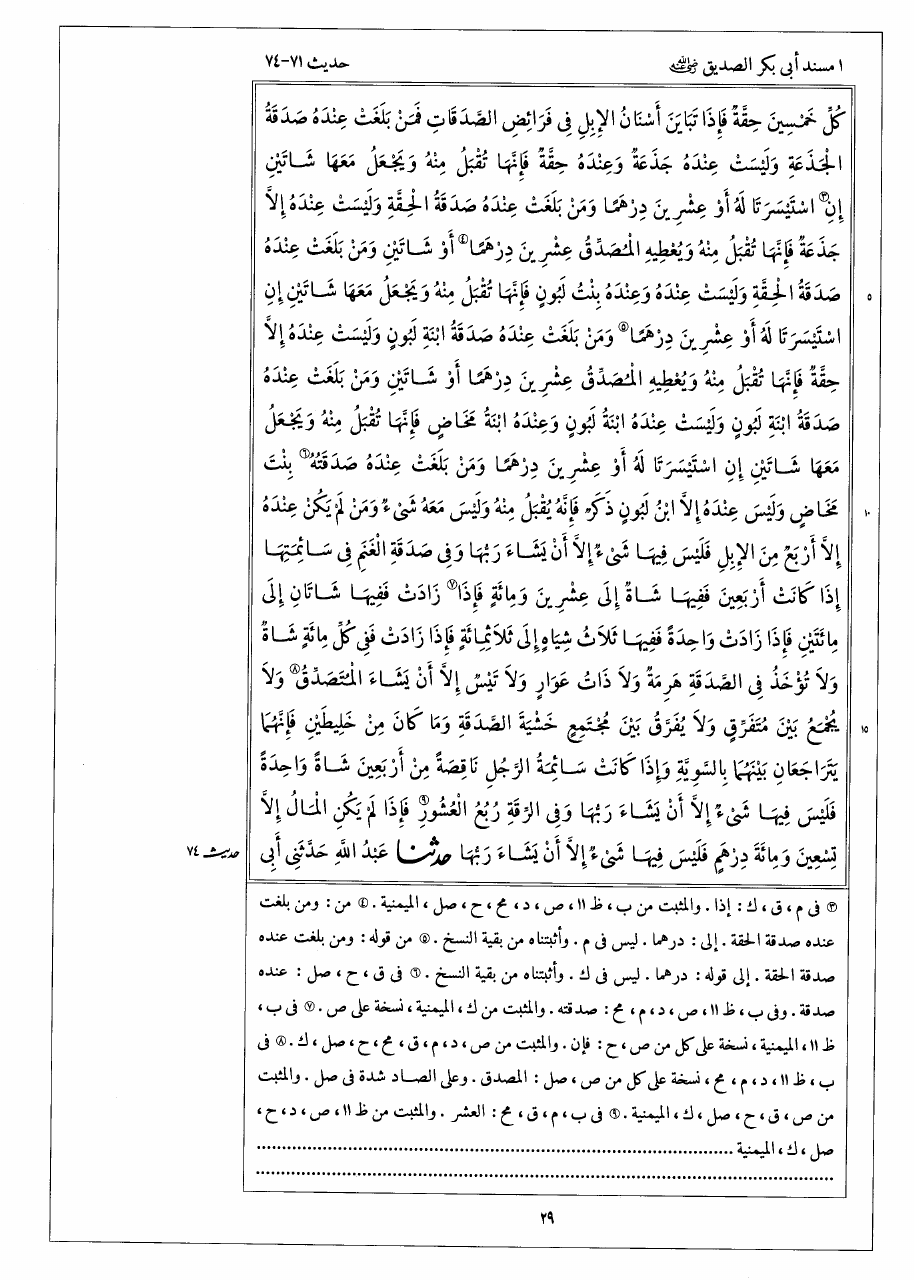 ١ مسند أبى بكر الصديق رضي الله عنه
حديث ٧١-٧٤
كُلِّ خَمْسِينَ حِقَّةٌ فَإِذَا تَبَايَنَ أَسْنَانُ الإِبِلِ فِى فَرَائِضِ الصَّدَقَاتِ فَمَنْ بَلَغَتْ عِنْدَهُ صَدَقَةُ
الْجَذَعَةِ وَلَيْسَتْ عِنْدَهُ جَذَعَةٌ وَعِنْدَهُ حِقَّةٌ فَإِنَّهَا تُقْبَلُ مِنْهُ وَيَجْعَلُ مَعَهَا شَاتَيْنِ
إِنِ٣ اسْتَيْسَرَتَا لَهُ أَوْ عِشْرِينَ دِرْهَمًا وَمَنْ بَلَغَتْ عِنْدَهُ صَدَقَةُ الْحِقَّةِ وَلَيْسَتْ عِنْدَهُ إِلاَّ
جَذَعَةٌ فَإِنَّهَا تُقْبَلُ مِنْهُ وَيُعْطِيهِ الْمُصَدِّقُ عِشْرِينَ دِرْهَمًا٤ أَوْ شَاتَيْنِ وَمَنْ بَلَغَتْ عِنْدَهُ
صَدَقَةُ الْحِقَّةِ وَلَيْسَتْ عِنْدَهُ وَعِنْدَهُ بِنْتُ لَبُونٍ فَإِنَّهَا تُقْبَلُ مِنْهُ وَيَجْعَلُ مَعَهَا شَاتَيْنِ إِنِ
٥
اسْتَيْسَرَتَا لَهُ أَوْ عِشْرِينَ دِرْهَمًا٥ وَمَنْ بَلَغَتْ عِنْدَهُ صَدَقَةُ ابْنَةِ لَبُونٍ وَلَيْسَتْ عِنْدَهُ إِلاَّ
حِقَّةٌ فَإِنَّهَا تُقْبَلُ مِنْهُ وَيُعْطِيهِ الْمُصَدِّقُ عِشْرِينَ دِرْهَمًا أَوْ شَاتَيْنِ وَمَنْ بَلَغَتْ عِنْدَهُ
صَدَقَةُ ابْنَةِ لَبُونٍ وَلَيْسَتْ عِنْدَهُ ابْنَةُ لَبُونٍ وَعِنْدَهُ ابْنَةُ مَخَاضٍ فَإِنَّهَا تُقْبَلُ مِنْهُ وَيَجْعَلُ
مَعَهَا شَاتَيْنِ إِنِ اسْتَيْسَرَتَا لَهُ أَوْ عِشْرِينَ دِرْهَمًا وَمَنْ بَلَغَتْ عِنْدَهُ صَدَقَتُهُ٦ بِنْتَ
مَخَاضٍ وَلَيْسَ عِنْدَهُ إِلاَّ ابْنُ لَبُونٍ ذَكَرٌ فَإِنَّهُ يُقْبَلُ مِنْهُ وَلَيْسَ مَعَهُ شَىْءٌ وَمَنْ لَمْ يَكُنْ عِنْدَهُ
١٠
إِلاَّ أَرْبَعٌ مِنَ الإِبِلِ فَلَيْسَ فِيهَا شَىْءٌ إِلاَّ أَنْ يَشَاءَ رَبُّهَا وَفِى صَدَقَةِ الْغَنَمِ فِى سَائِمَتِهَا
إِذَا كَانَتْ أَرْبَعِينَ فَفِيهَا شَاةٌ إِلَى عِشْرِينَ وَمِائَةٍ فَإِذَا٧ زَادَتْ فَفِيهَا شَاتَانِ إِلَى
مِائَتَيْنِ فَإِذَا زَادَتْ وَاحِدَةً فَفِيهَا ثَلاَثُ شِيَاهٍ إِلَى ثَلاَثِمِائَةٍ فَإِذَا زَادَتْ فَفِى كُلِّ مِائَةٍ شَاةٌ
وَلاَ تُؤْخَذُ فِى الصَّدَقَةِ هَرِمَةٌ وَلاَ ذَاتُ عَوَارٍ وَلاَ تَيْسٌ إِلاَّ أَنْ يَشَاءَ الْمُتَصَدِّقُ٨ وَلاَ
يُجْمَعُ بَيْنَ مُتَفَرِّقٍ وَلاَ يُفَرَّقُ بَيْنَ مُجْتَمِعٍ خَشْيَةَ الصَّدَقَةِ وَمَا كَانَ مِنْ خَلِيطَيْنِ فَإِنَّهُمَا
١٥
يَتَرَاجَعَانِ بَيْنَهُمَا بِالسَّوِيَّةِ وَإِذَا كَانَتْ سَائِمَةُ الرَّجُلِ نَاقِصَةً مِنْ أَرْبَعِينَ شَاةً وَاحِدَةً
فَلَيْسَ فِيهَا شَىْءٌ إِلاَّ أَنْ يَشَاءَ رَبُّهَا وَفِى الرِّقَةِ رُبُعُ الْعُشُورِ٩ فَإِذَا لَمْ يَكُنِ الْمَالُ إِلاَّ
تِسْعِينَ وَمِائَةَ دِرْهَمٍ فَلَيْسَ فِيهَا شَىْءٌ إِلاَّ أَنْ يَشَاءَ رَبُّهَا حدثنا عَبْدُ اللَّهِ حَدَّثَنِى أَبِى
حديث ٧٤
٣ فى م ، ق ، ك : إذا . والمثبت من ب ، ظ ١١ ، ص ، د ، مح ، ح ، صل ، الميمنية . ٤ من : ومن بلغت
عنده صدقة الحقة . إلى : درهما . ليس فى م . وأثبتناه من بقية النسخ . ٥ من قوله : ومن بلغت عنده
صدقة الحقة . إلى قوله : درهما . ليس فى ك . وأثبتناه من بقية النسخ . ٦ فى ق ، ح ، صل : عنده
صدقة . وفى ب ، ظ ١١ ، ص ، د ، م ، مح : صدقته . والمثبت من ك ، الميمنية ، نسخة على ص . ٧ فى ب ،
ظ ١١ ، الميمنية ، نسخة على كل من ص ، ح : فإن . والمثبت من ص ، د ، م ، ق ، مح ، ح ، صل ، ك . ٨ فى
ب ، ظ ١١ ، د ، م ، مح ، نسخة على كل من ص ، صل : المصدق . وعلى الصاد شدة فى صل . والمثبت
من ص ، ق ، ح ، صل ، ك ، الميمنية . ٩ فى ب ، م ، ق ، مح : العشر . والمثبت من ظ ١١ ، ص ، د ، ح ،
صل ، ك ، الميمنية
٢٩